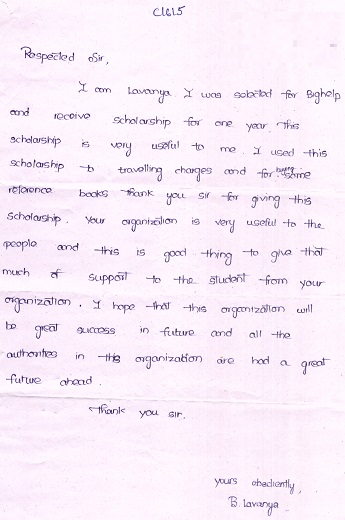 C1615
Respected Sir,
I am Lavanya. I was selected for Bighelp
and receive scholarship for one year. This
scholarship is very useful to me. I used this
scholarship to travelling charges and for buying some
reference books thank you sir for giving this
Scholarship. Your organization is very useful to the
people and this is good thing to give that
much of support to the student from your
organization. I hope that this organization will
be great success in future and all the
authorities in this organization are had a great
future ahead.
Thank you sir.
yours obediently,
B. Lavanya